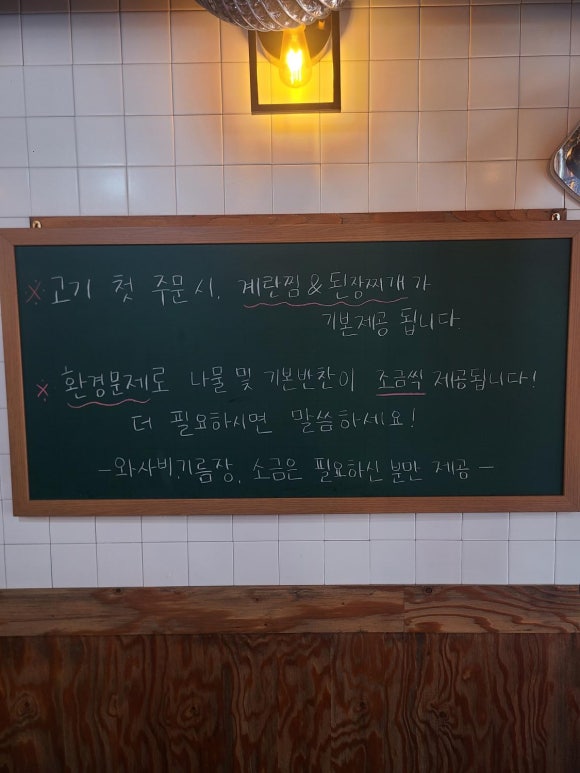 ※ 고기 첫 주문시, 계란찜 & 된장찌개가
기본제공 됩니다.
※ 환경문제로 나물 및 기본반찬이 조금씩 제공됩니다!
더 필요하시면 말씀하세요!
-와사비,기름장, 소금은 필요하신 분만 제공 -